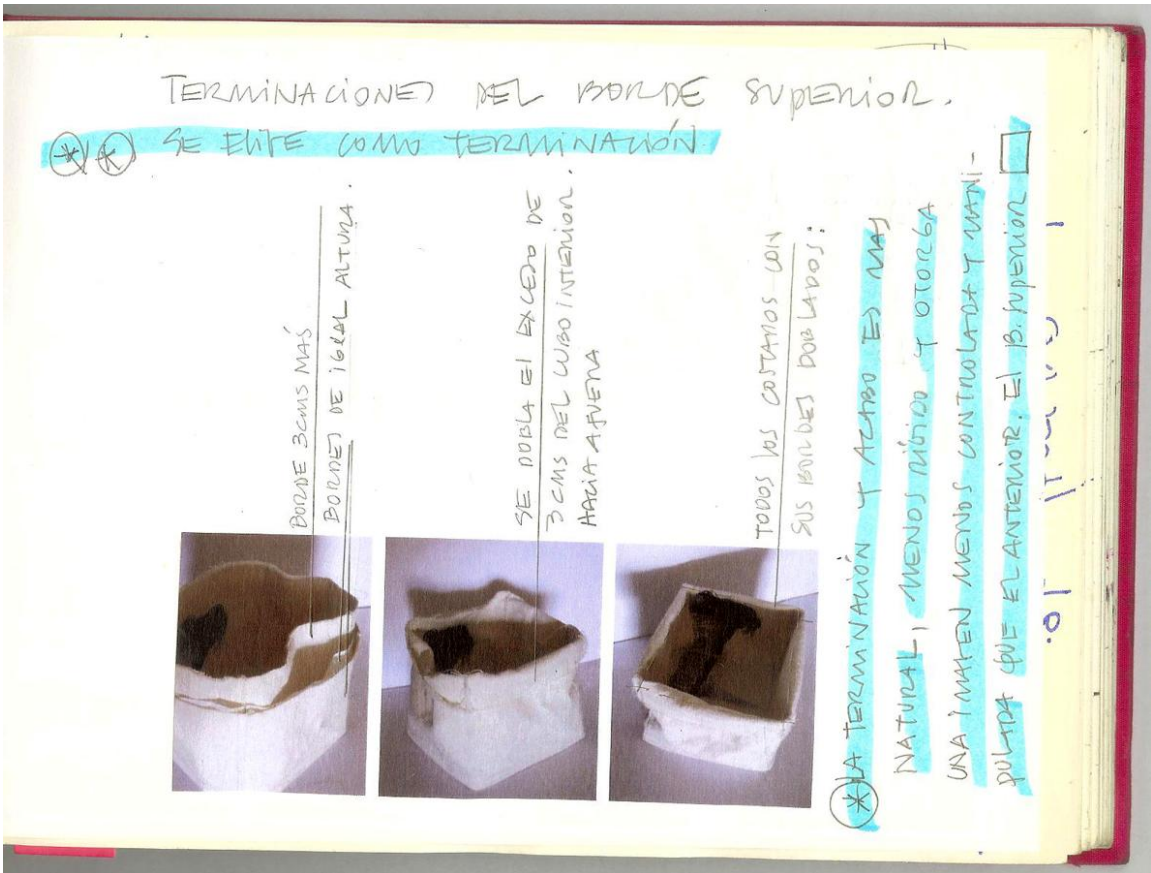 TERMINACIONES DEL BORDE SUPERIOR.
** SE ELIJE COMO TERMINACIÓN
BORDE 3CMS MÁS
BORDES DE IGUAL ALTURA.
SE DOBLA EL EXCESO DE
3 CMS DEL CUBO INTERIOR.
HACIA AFUERA
TODOS LOS COSTADOS CON
SUS BORDES DOBLADOS:
* LA TERMINACIÓN Y ACABO ES MAS
NATURAL, MENOS RÍGIDO Y OTORGA
UNA IMAGEN MENOS CONTROLADA Y MANI-
PULADA QUE EL ANTERIOR. EL B. SUPERIOR